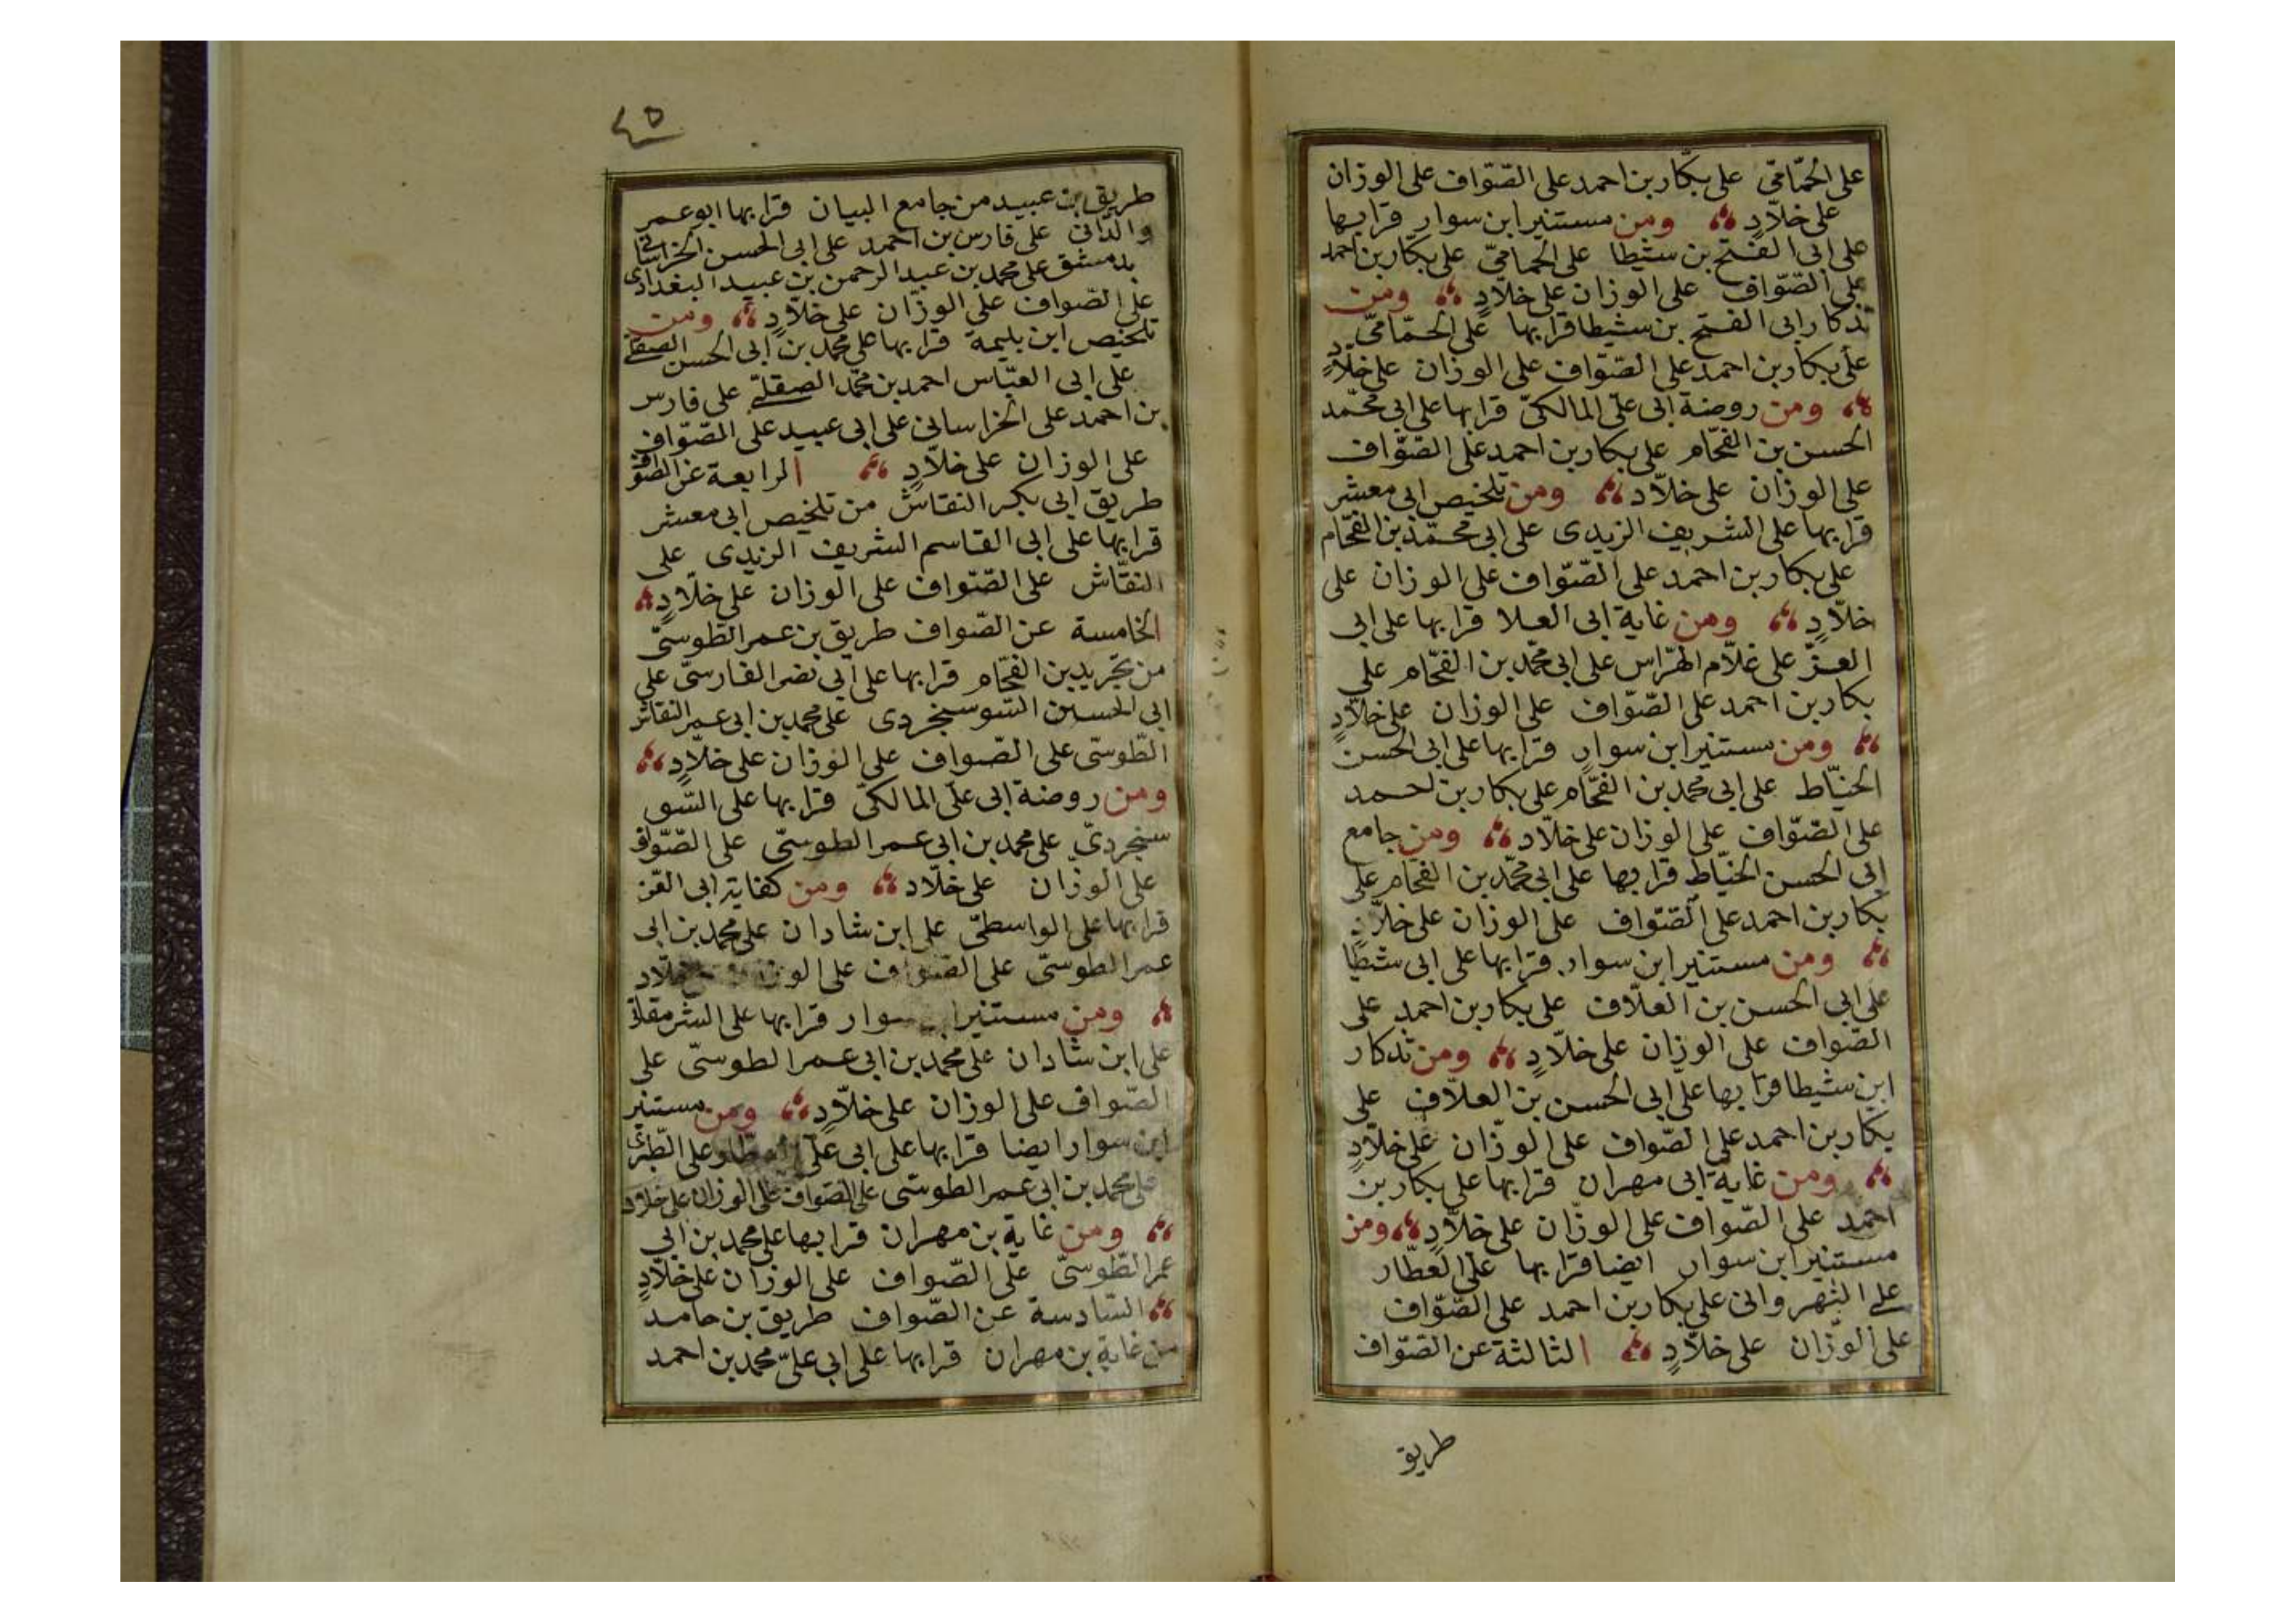 على الحمّامّى على بكّار بن احمد على الصّوّاف على الوزان
على خلّادٍ ومن مستنير ابن سوار قرا بها
على ابى الفتح بن شيطا على الحمامىّ على بكّار بن احمد
على الصّوّاف على الوزان على خلّادٍ ومن
تذكار ابى الفتح بن شيطا قرا بها على الحمّامىّ
على بكار بن احمد على الصّوّاف على الوزان على خلّادٍ
ومن روضة ابى علىّ المالكىّ قرا بها على ابى محمّد
الحسن بن الفحّام على بكار بن احمد على الصّوّاف
على الوزان على خلّاد ومن تلخيص ابى معشر
قرا بها على الشريف الزيدى على ابى محمّد بن الفحّام
على بكار بن احمد على الصّوّاف على الوزان على
خلّادٍ ومن غاية ابى العلا قرا بها على ابى
العزّ على غلّام الهرّاس على ابى محمّد بن الفحّام على
بكار بن احمد على الصّوّاف على الوزان على خلّادٍ
ومن مستنير ابن سوارٍ قرا بها على ابى الحسن
الخيّاط على ابى محمد بن الفحّام على بكار بن احمد
على الصّوّاف على الوزان على خلّاد ومن جامع
ابى الحسن الخيّاط قرا بها على ابى محمّد بن الفحّام على
بكار بن احمد على الصّوّاف على الوزان على خلّادٍ
ومن مستنير ابن سوار قرا بها على ابى شيطا
على ابى الحسن بن العلّاف على بكار بن احمد على
الصّواف على الوزان على خلّادٍ ومن تذكار
ابن شيطا قرا بها على ابى الحسن بن العلّاف على
بكار بن احمد على الصّواف على الوزّان على خلّادٍ
ومن غاية ابى مهران قرا بها على بكار بن
احمد على الصّواف على الوزّان على خلّادٍ ومن
مستنير ابن سوار ايضا قرا بها على العطّار
على النهروانى على بكار بن احمد على الصّوّاف
على الوزّان على خلّادٍ الثالثة عن الصّوّاف
طريق
٤٥
طريق بن عبيد من جامع البيان قرا بها ابو عمر
والدّانى على فارس بن احمد على ابى الحسن الخراسانى
بدمشق على محمد بن عبد الرحمن بن عبيد البغدادى
على الصّواف على الوزّان على خلّادٍ ومن
تلخيص ابن بليمة قرا بها على محمد بن ابى الحسن الصقلى
على ابى العبّاس احمد بن محمّد الصقلىّ على فارس
بن احمد على الخراسانى على ابى عبيد على الصّوّاف
على الوزان على خلّادٍ الرابعة عن الصّوّاف
طريق ابى بكر النقاش من تلخيص ابى معشر
قرا بها على ابى القاسم الشريف الزيدى على
النقّاش على الصّوّاف على الوزان على خلّادٍ
الخامسة عن الصّواف طريق بن عمر الطّوسىّ
من تجريد بن الفحّام قرا بها على ابى نصر الفارسىّ على
ابى الحسين السّوسنجردى على محمد بن ابى عمر النقاش
الطّوسىّ على الصّواف على الوزان على خلّادٍ
ومن روضة ابى علىّ المالكىّ قرا بها على السّو
سنجردىّ على محمد بن ابى عمر الطوسىّ على الصّوّاف
على الوزّان على خلّاد ومن كفاية ابى العزّ
قرا بها على الواسطىّ على ابن شاذان على محمد بن ابى
عمر الطوسىّ على الصّوّاف على خلّاد
ومن مستنير سوار قرا بها على الشرمقانى
على ابن شاذان على محمد بن ابى عمر الطوسىّ على
الصّواف على الوزان على خلّادٍ ومن مستنير
ابن سوار ايضا قرا بها على ابى علىّ العطار على الطبرى
على محمد بن ابى عمر الطوسّى على الصّوّاف على الوزان على خلاد
ومن غاية بن مهران قرا بها على محمد بن ابى
عمر الطّوسىّ على الصّواف على الوزان على خلّادٍ
السّادسة عن الصّواف طريق بن حامد
من غاية بن مهران قرا بها على ابى علىّ محمد بن احمد